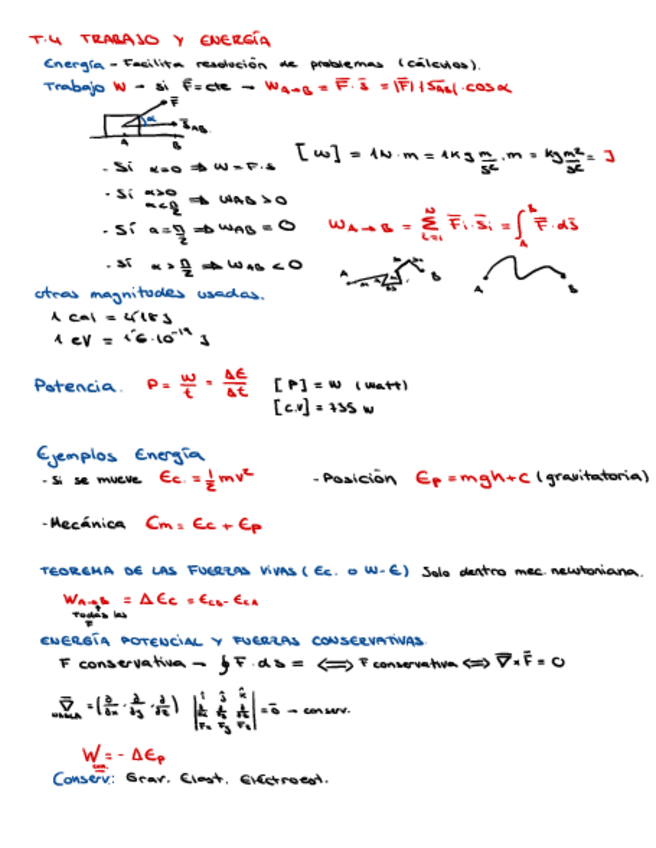 T.4 TRABAJO Y ENERGÍA
Energía - Facilita resolución de problemas (cálculos).
Trabajo W → si F̅=cte → W_A→B = F̅·s̅ = |F̅|·|s̅_AB|·cosα
F̅
α
s̅_AB
A B
[W] = 1N·m = 1Kg m/s²·m = Kg m²/s² = J
- Si α=0 ⇒ W=F·s
- Si α>0 α<π/2 ⇒ W_AB>0
- Si α=π/2 ⇒ W_AB=0
W_A→B = Σ_{i=1}^{N} F̅i·S̅i = ∫_A^B F̅·ds̅
- Si α>π/2 ⇒ W_AB<0
A B A B
otras magnitudes usadas.
1 cal = 4'18 J
1 eV = 1'6·10⁻¹⁹ J
Potencia. P = W/t = ΔE/Δt [P] = W (Watt)
[C.V] = 735 W
Ejemplos Energía
- Si se mueve Ec. = 1/2 mv² - Posición Ep = mgh+C (gravitatoria)
- Mecánica Em = Ec + Ep
TEOREMA DE LAS FUERZAS VIVAS (Ec. o W-E) Solo dentro mec. newtoniana.
W_A→B = ΔEc = E_CB - E_CA
Todas las F
ENERGÍA POTENCIAL Y FUERZAS CONSERVATIVAS.
F conservativa → ∮ F·ds = ⟺ F conservativa ⟺ ∇̅×F̅ = 0
∇̅ = (∂/∂x, ∂/∂y, ∂/∂z) |i j k; ∂/∂x ∂/∂y ∂/∂z; Fx Fy Fz| = 0̅ → conserv.
NABLA
W = - ΔEp
con.
Conserv: Grav. Elast. Electroest.